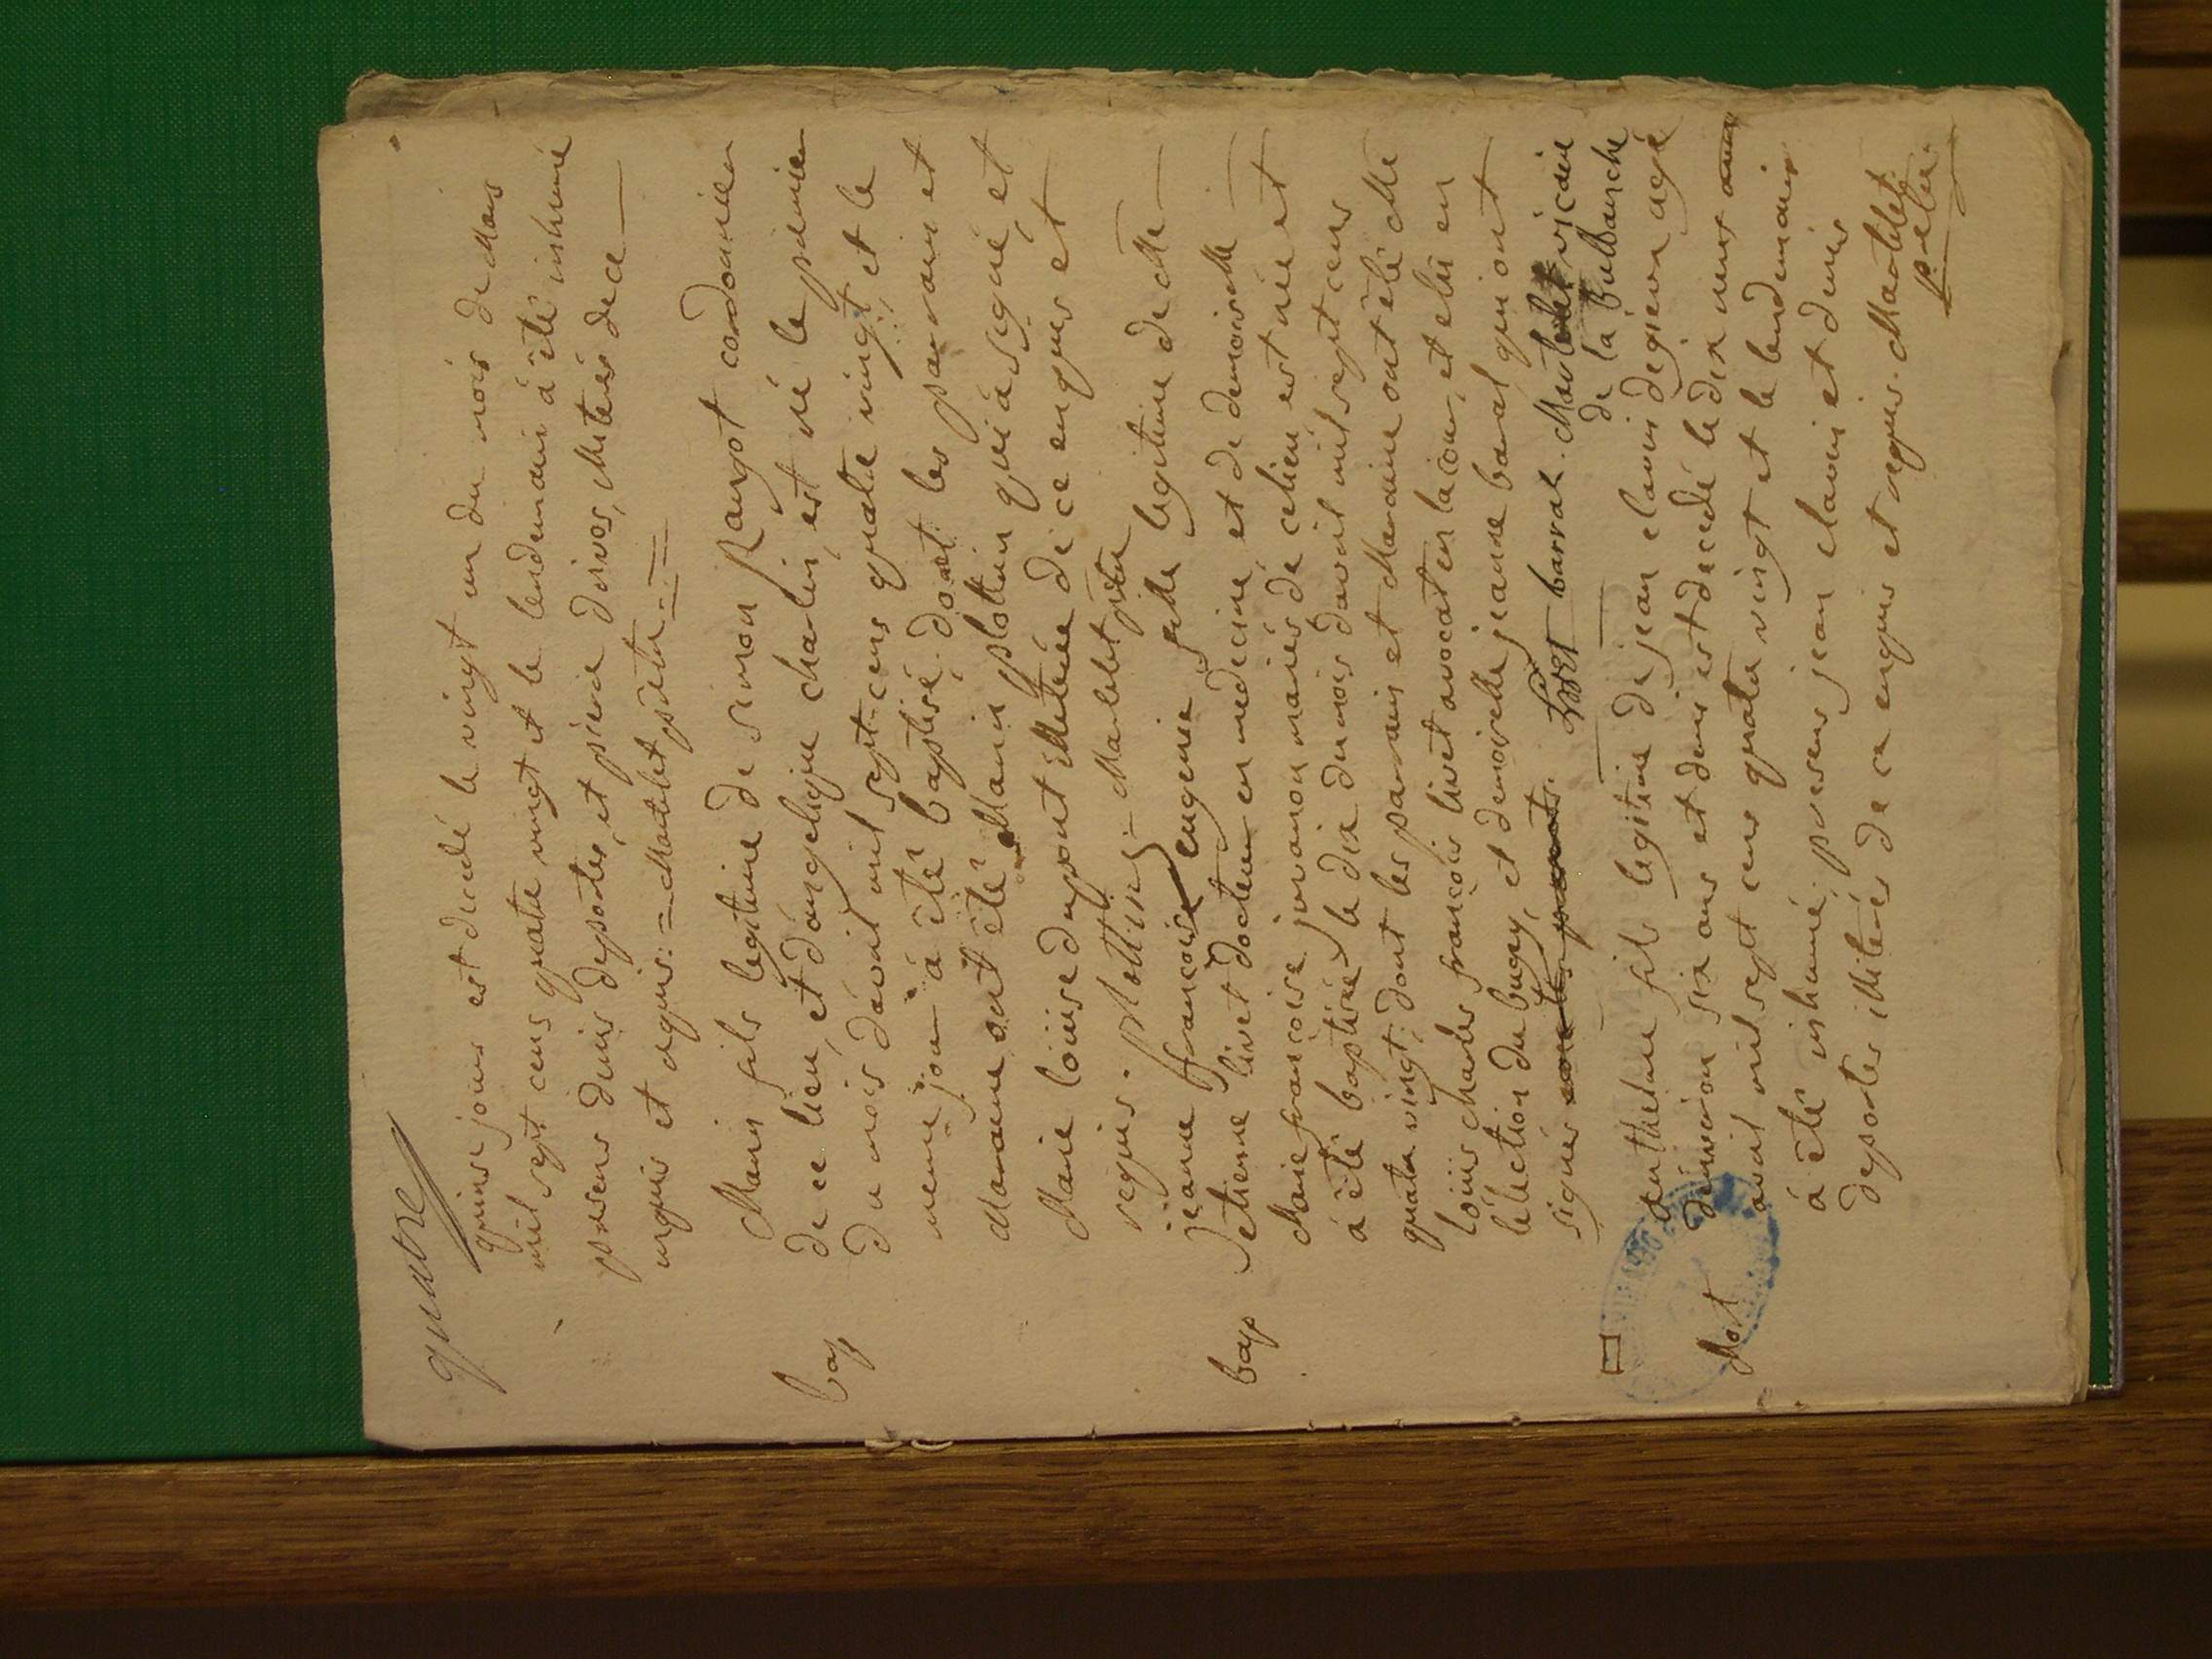 quatre
quinse jours est decedé le vingt un du mois de Mars
mil sept cens quatre vingt et le lendemain à été inhumé
presens denis desportes, et pierre doivos, illiterés de ce
enquis et requis: = Martelet ptre
bap
Marin fils legitime de simon Rangot cordonnier
de ce lieu, et d'angelique charlin, est né le premier
du mois d'avril mil sept cens quatre vingt, et le
meme jour à été baptisé. dont les parrain et
Maraine ont été Marin plottin qui à signé, et
Marie loüise dupont illiterée de ce enquise et
requis. plottin Martelet ptre
bap
jeanne francoise eugenie fille legitime de Mr
etienne livet docteur en medecine, et de demoiselle
Marie francoise juvanon mariés de ce lieu est née et
à été baptisée le dix du mois d'avril mil sept cens
quatre vingt: dont les parrain et Maraine ont été Mr
loüis charles françois livet avocat en la cour, et elu en
l'élection du bugey, et demoiselle jeanne barral qui ont
signés. Livet barral. Martelet vicaire
de la Bulbanche
Mort
fils legitime de jean clavis vigneron agé
d'environ six ans et demis est decedé le dix neuf
avril mil sept cens quatre vingt et le lendemain
à été inhumé; presens jean clavis et denis
desportes illiterés de ce enquis et requis. Martelet
ptre